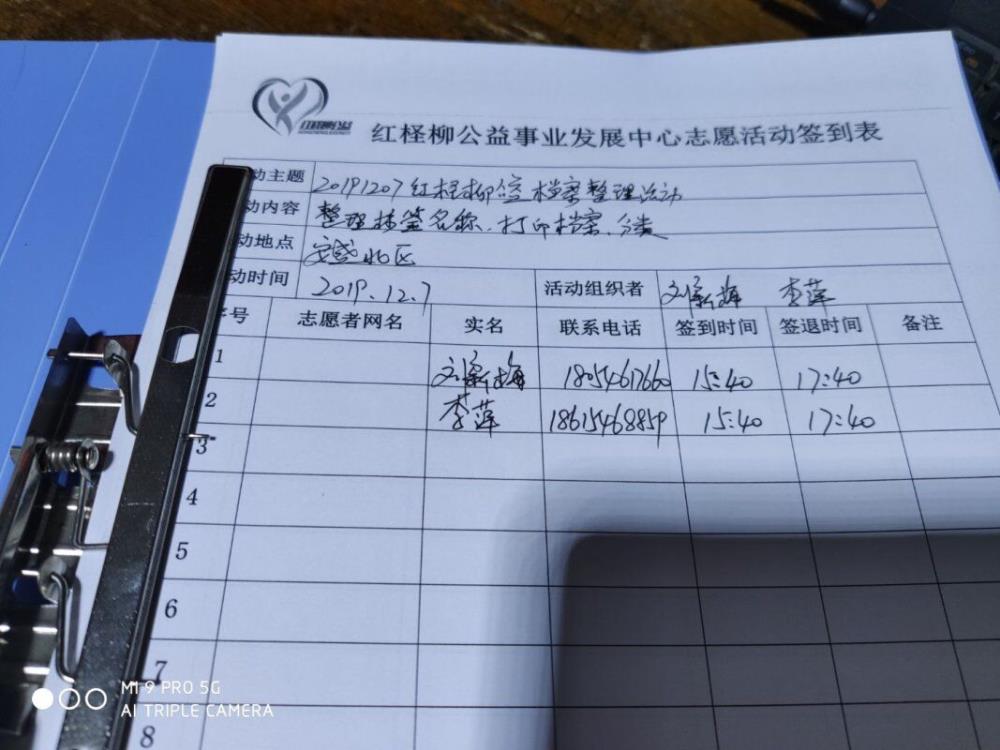 红柽柳公益事业发展中心志愿活动签到表
动主题 20191207红柽柳 档案整理活动
动内容 整理标签名称、打印档案、分类
动地点 安盛北区
动时间 2019.12.7 活动组织者 李萍
序号 志愿者网名 实名 联系电话 签到时间 签退时间 备注
1 18054617660 15:40 17:40
2 李萍 18615468859 15:40 17:40
3
4
5
6
7
8
MI 9 PRO 5G
AI TRIPLE CAMERA